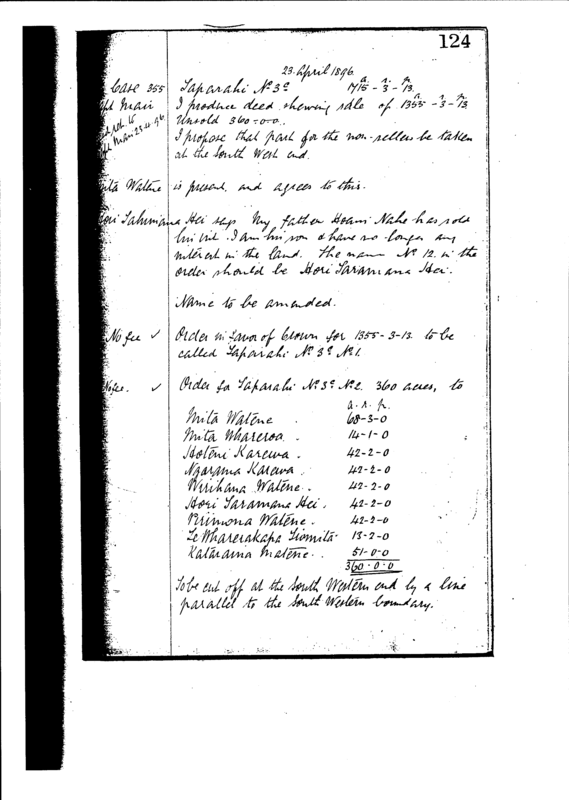 124
23 April 1896
Case 355 Taparahi No 3c 1715 - 3 - 13
a. r. p.
Mair I produce deed shewing sale of 1355 - 3 - 13
Unsold 360 - 0 - 0.
I propose that part for the non-sellers be taken
at the South West end.
Mair 23.4.96
Watene is present and agrees to this.
Hei says My father Hoani Nahe has sold
his int. I am his son & have no longer any
interest in the land. The name No 12 in the
order should be Hori Taramana Hei.
Name to be amended.
No fee ✓ Order in favor of Crown for 1355-3-13 to be
called Taparahi No 3c No 1.
No fee. ✓ Order for Taparahi No 3c No 2. 360 acres, to
a. r. p.
Mita Watene . 68-3-0
Mita Whareroa . 14-1-0
Hoteni Karewa . 42-2-0
Ngarama Karewa . 42-2-0
Wirihana Watene . 42-2-0
Hori Taramana Hei . 42-2-0
Pirimona Watene . 42-2-0
Te Wharerakapa 13-2-0
Kataraina Matene . . 51-0-0
360-0-0
To be cut off at the South Western end by a line
parallel to the South Western boundary.